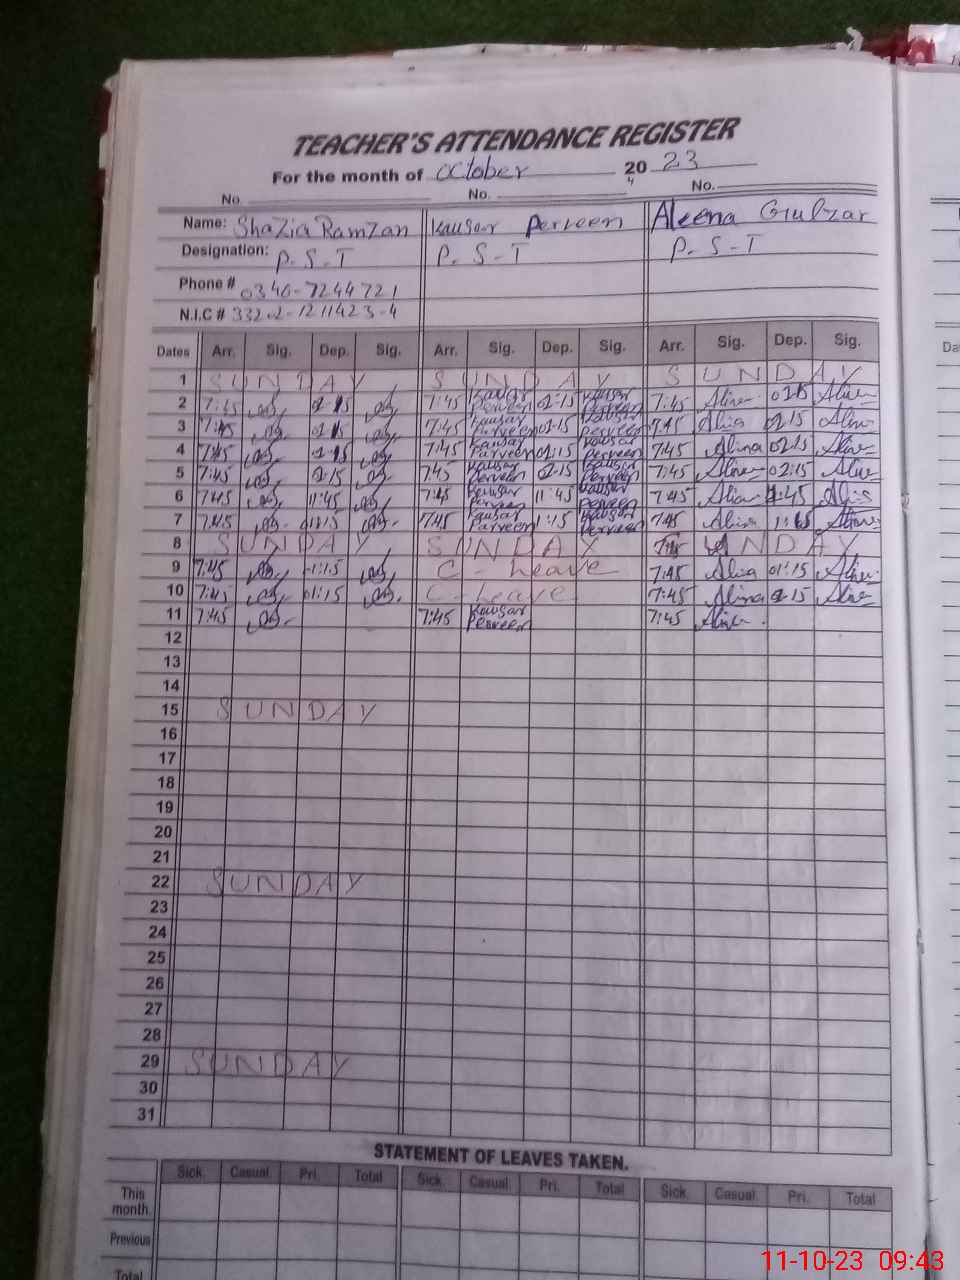 TEACHER'S ATTENDANCE REGISTER
For the month of October 2023
No. No. No.
Name: Shazia Ramzan Kausar Perveen Aleena Gulzar
Designation: P.S.T P.S.T P.S-T
Phone # 0346-7244721
N.I.C # 33202-1211423-4
Dates Arr. Sig. Dep. Sig. Arr. Sig. Dep. Sig. Arr. Sig. Dep. Sig.
1 SUNDAY SUNDAY SUNDAY
2 7:45 02:15 7:45 Kausar Perveen 02:15 Kausar Perveen 7:45 02:15
3 7:45 02:15 7:45 Kausar Perveen 02:15 Kausar Perveen 7:45 02:15
4 7:45 02:15 7:45 Kausar Perveen 02:15 Kausar Perveen 7:45 02:15
5 7:45 02:15 7:45 Kausar Perveen 02:15 Kausar Perveen 7:45 02:15
6 7:45 11:45 7:45 Kausar Perveen 11:45 Kausar Perveen 7:45 11:45
7 7:45 7:45 Kausar Perveen 1:15 Kausar Perveen 7:45
8 SUNDAY SUNDAY SUNDAY
9 7:45 C-Leave 7:45 01:15
10 7:45 01:15 C-Leave 7:45
11 7:45 7:45 Kausar Perveen 7:45
12
13
14
15 SUNDAY
16
17
18
19
20
21
22 SUNDAY
23
24
25
26
27
28
29 SUNDAY
30
31
STATEMENT OF LEAVES TAKEN.
Sick. Casual Pri. Total Sick. Casual Pri. Total Sick. Casual. Pri. Total
This month.
Previous
Total
11-10-23 09:43